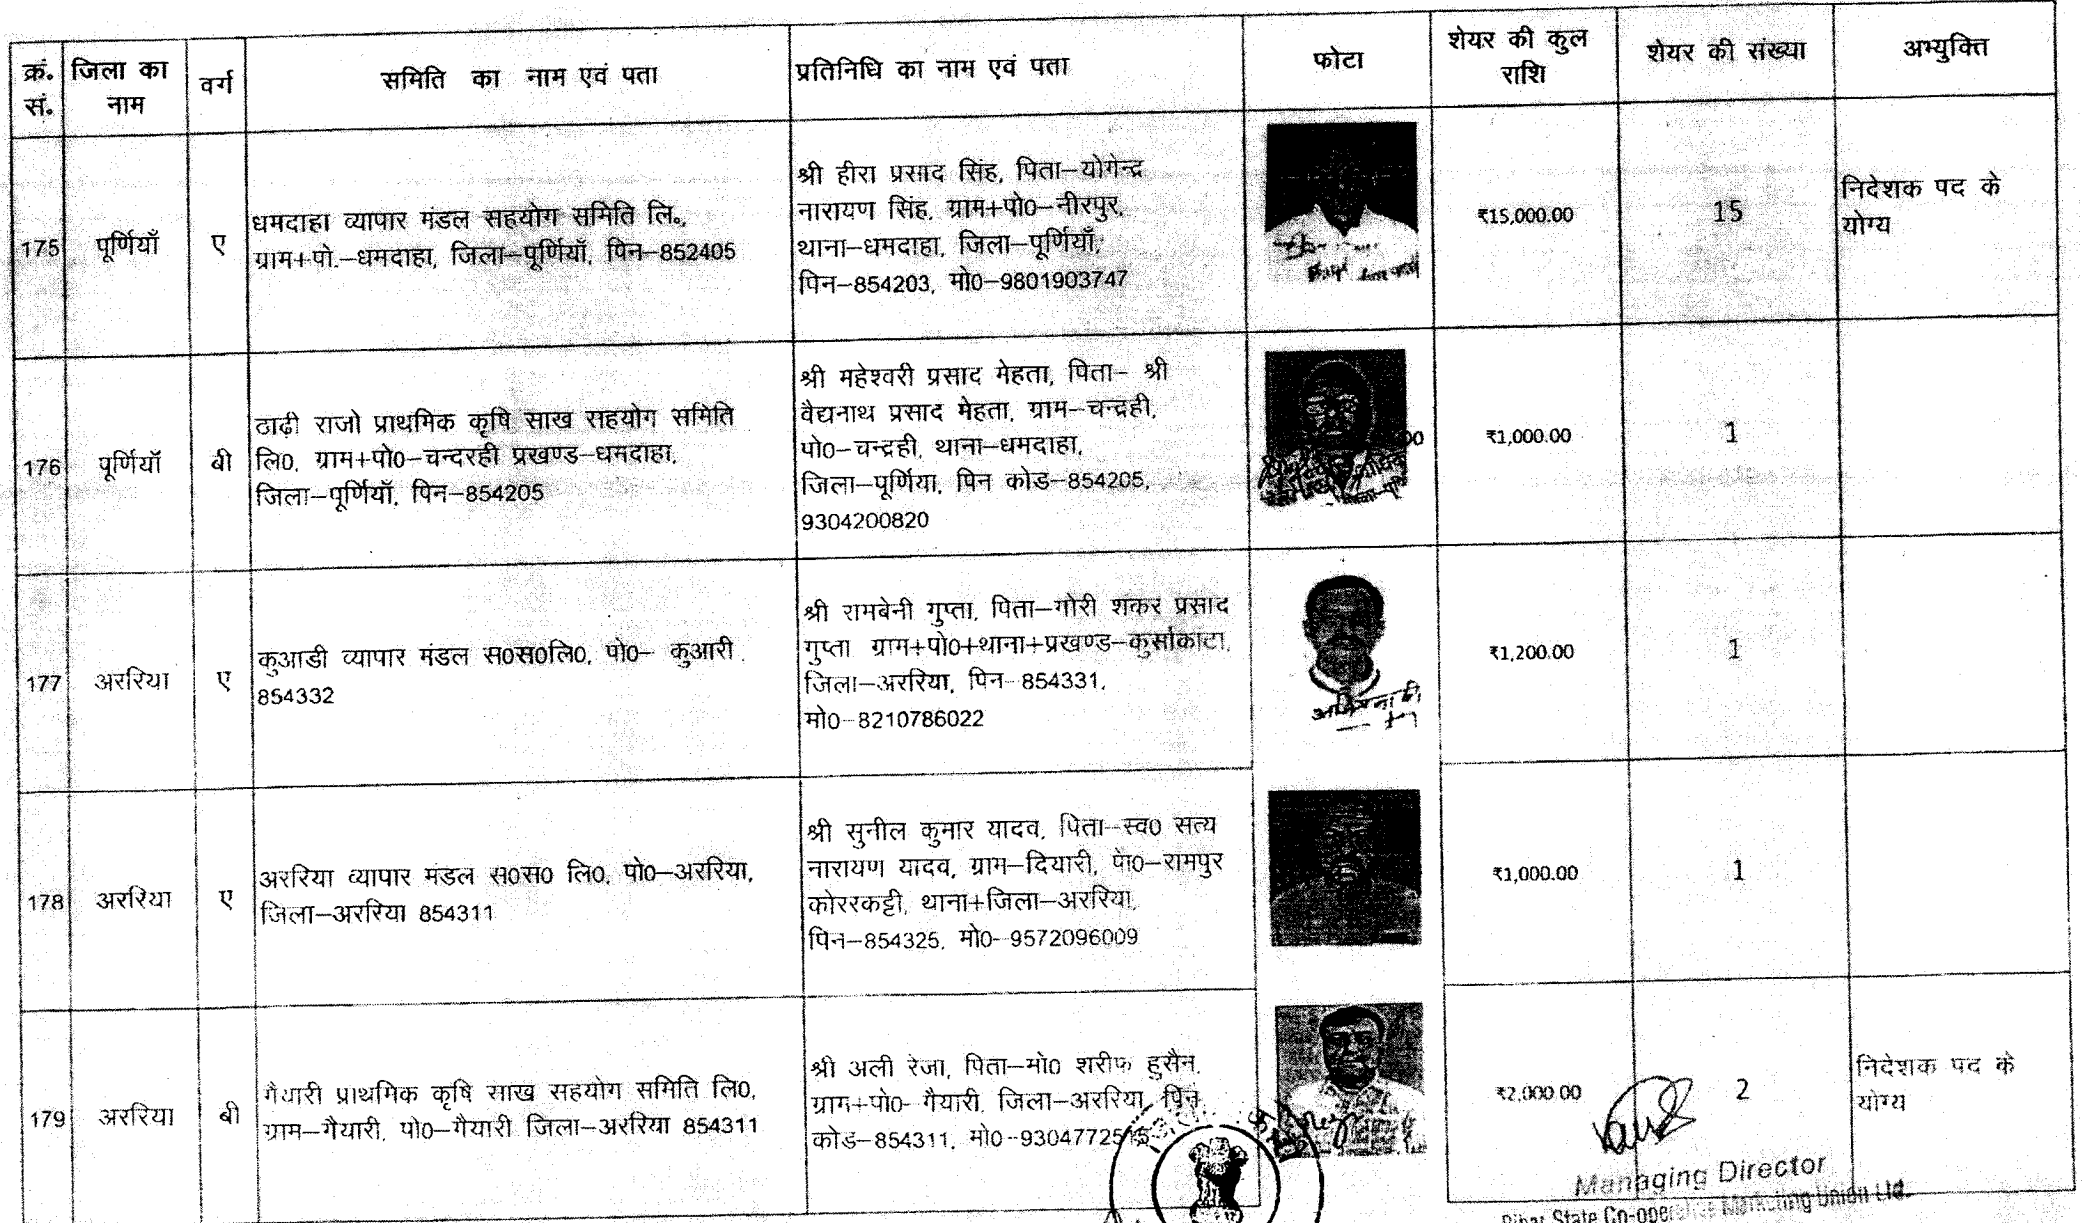 क्रं. सं. जिला का नाम वर्ग समिति का नाम एवं पता प्रतिनिधि का नाम एवं पता फोटा शेयर की कुल राशि शेयर की संख्या अभ्युक्ति
175 पूर्णियाँ ए
धमदाहा व्यापार मंडल सहयोग समिति लि०,
ग्राम+पो.–धमदाहा, जिला–पूर्णियाँ, पिन–852405
श्री हीरा प्रसाद सिंह, पिता–योगेन्द्र
नारायण सिंह, ग्राम+पो0–नीरपुर,
थाना–धमदाहा, जिला–पूर्णियाँ,
पिन–854203, मो0–9801903747
₹15,000.00
15
निदेशक पद के
योग्य
176 पूर्णियाँ बी
ठाढ़ी राजो प्राथमिक कृषि साख सहयोग समिति
लि0, ग्राम+पो0–चन्दरही प्रखण्ड–धमदाहा,
जिला–पूर्णियाँ, पिन–854205
श्री महेश्वरी प्रसाद मेहता, पिता– श्री
वैद्यनाथ प्रसाद मेहता, ग्राम–चन्द्रही,
पो0–चन्द्रही, थाना–धमदाहा,
जिला–पूर्णिया, पिन कोड–854205,
9304200820
₹1,000.00
1
177 अररिया ए
कुआडी व्यापार मंडल स0स0लि0, पो0– कुआरी
854332
श्री रामबेनी गुप्ता, पिता–गोरी शकर प्रसाद
गुप्ता ग्राम+पो0+थाना+प्रखण्ड–कुर्साकाटा,
जिला–अररिया, पिन–854331,
मो0–8210786022
₹1,200.00
1
178 अररिया ए
अररिया व्यापार मंडल स0स0 लि0, पो0–अररिया,
जिला–अररिया 854311
श्री सुनील कुमार यादव, पिता–स्व0 सत्य
नारायण यादव, ग्राम–दियारी, पो0–रामपुर
कोररकट्टी, थाना+जिला–अररिया,
पिन–854325, मो0–9572096009
₹1,000.00
1
179 अररिया बी
गैयारी प्राथमिक कृषि साख सहयोग समिति लि0,
ग्राम–गैयारी, पो0–गैयारी जिला–अररिया 854311
श्री अली रेजा, पिता–मो0 शरीफ हुसैन,
ग्राम+पो0– गैयारी, जिला–अररिया, पिन
कोड–854311, मो0–9304772515
₹2,000.00
2
निदेशक पद के
योग्य
Managing Director
Bihar State Co-operative Marketing Union Ltd.